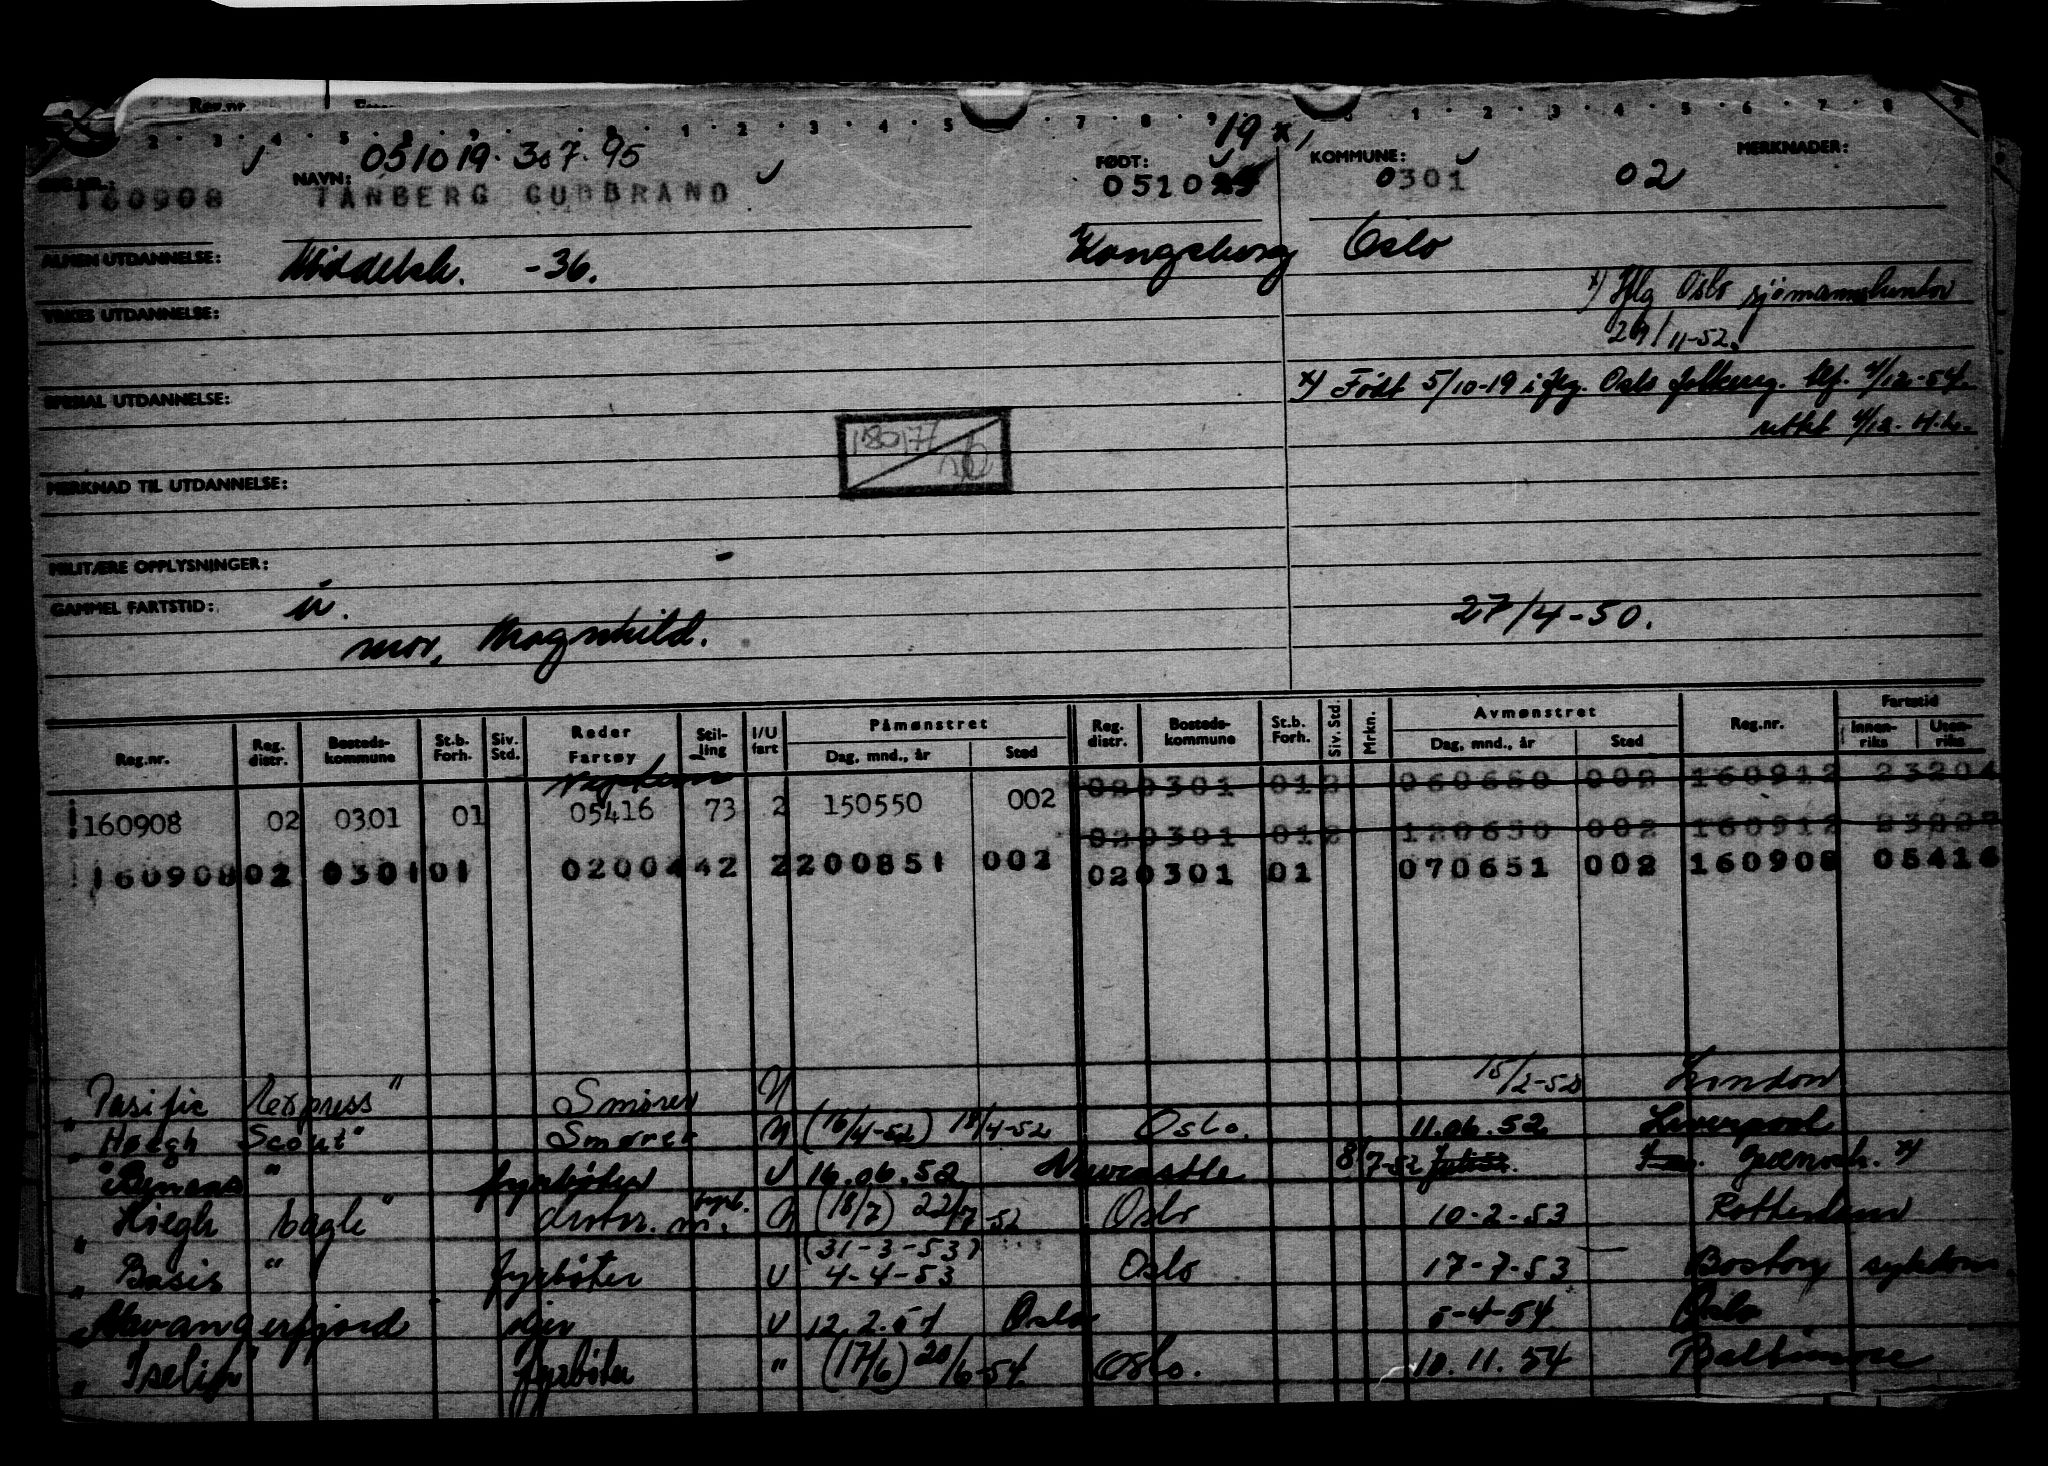 Reg.nr.
2 · 3 · 4 · 5 · 6 · 9 · 0 · 1 · 2 · 3 · 4 · 5 · 7 · 8 · 9 · 1 · 2 · 3 · 4 · 5 · 6 · 7 · 8 · 9
051019. 307. 95 19 x)
REG.NR.: 160908 NAVN: TANBERG GUDBRAND FØDT: 0510 KOMMUNE: 0301 02 MERKNADER:
ALMEN UTDANNELSE: Middelsk. -36. Kongsberg Oslo
x) Iflg Oslo sjømannskontor
YRKES UTDANNELSE: 29/11-52.
SPESIAL UTDANNELSE: x) Født 5/10-19 i flg. Oslo folkereg. 4/12-54.
rettet 4/12.
180177
MERKNAD TIL UTDANNELSE:
MILITÆRE OPPLYSNINGER: -
GAMMEL FARTSTID: u. 27/4-50.
mor, Magnhild.
Reg.nr. Reg. distr. Bosteds-kommune St.b. Forh. Siv. Std. Reder Fartøy Stil-ling I/U fart Påmønstret Dag, mnd., år Sted Reg. distr. Bosteds-kommune St.b. Forh. Siv. Std. Mrkn. Avmønstret Dag, mnd., år Sted Reg.nr. Fartstid Innen-riks Uten-riks
020301 012 060650 002 160912 23204
160908 02 0301 01 05416 73 2 150550 002
020301 012 120650 002 160912
160908 02 0301 01 02004 42 2 200851 002 020301 01 070651 002 160908 05416
" Pasific Express" Smører U 15/2-52 London
" Høegh Scout" Smører U (16/4-52) 18/4-52 Oslo. 11.06.52 Liverpool
" fyrbøter U 16.06.52 Newcastle 8/7-52 Greenock. x)
" Høegh Eagle" fyrb. m. U (18/7) 22/7-52 Oslo 10-2-53 Rotterdam
" Basis " fyrbøter U (31-3-53) 4-4-53 Oslo 17-7-53 Boston sykdom.
" Stavangerfjord U 12.2.54 Oslo 5-4-54 Oslo
" Iselin fyrbøter " (17/6) 20/6-54 Oslo. 10.11.54 Baltimore